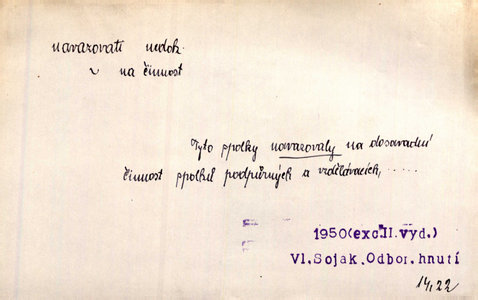 navazovati nedok.
v na činnost
Tyto spolky navazovaly na dosavadní
činnost spolků podpůrných a vzdělávacích, .....
1950(exc.II.vyd.)
Vl.Soják.Odbor.hnutí
14,22